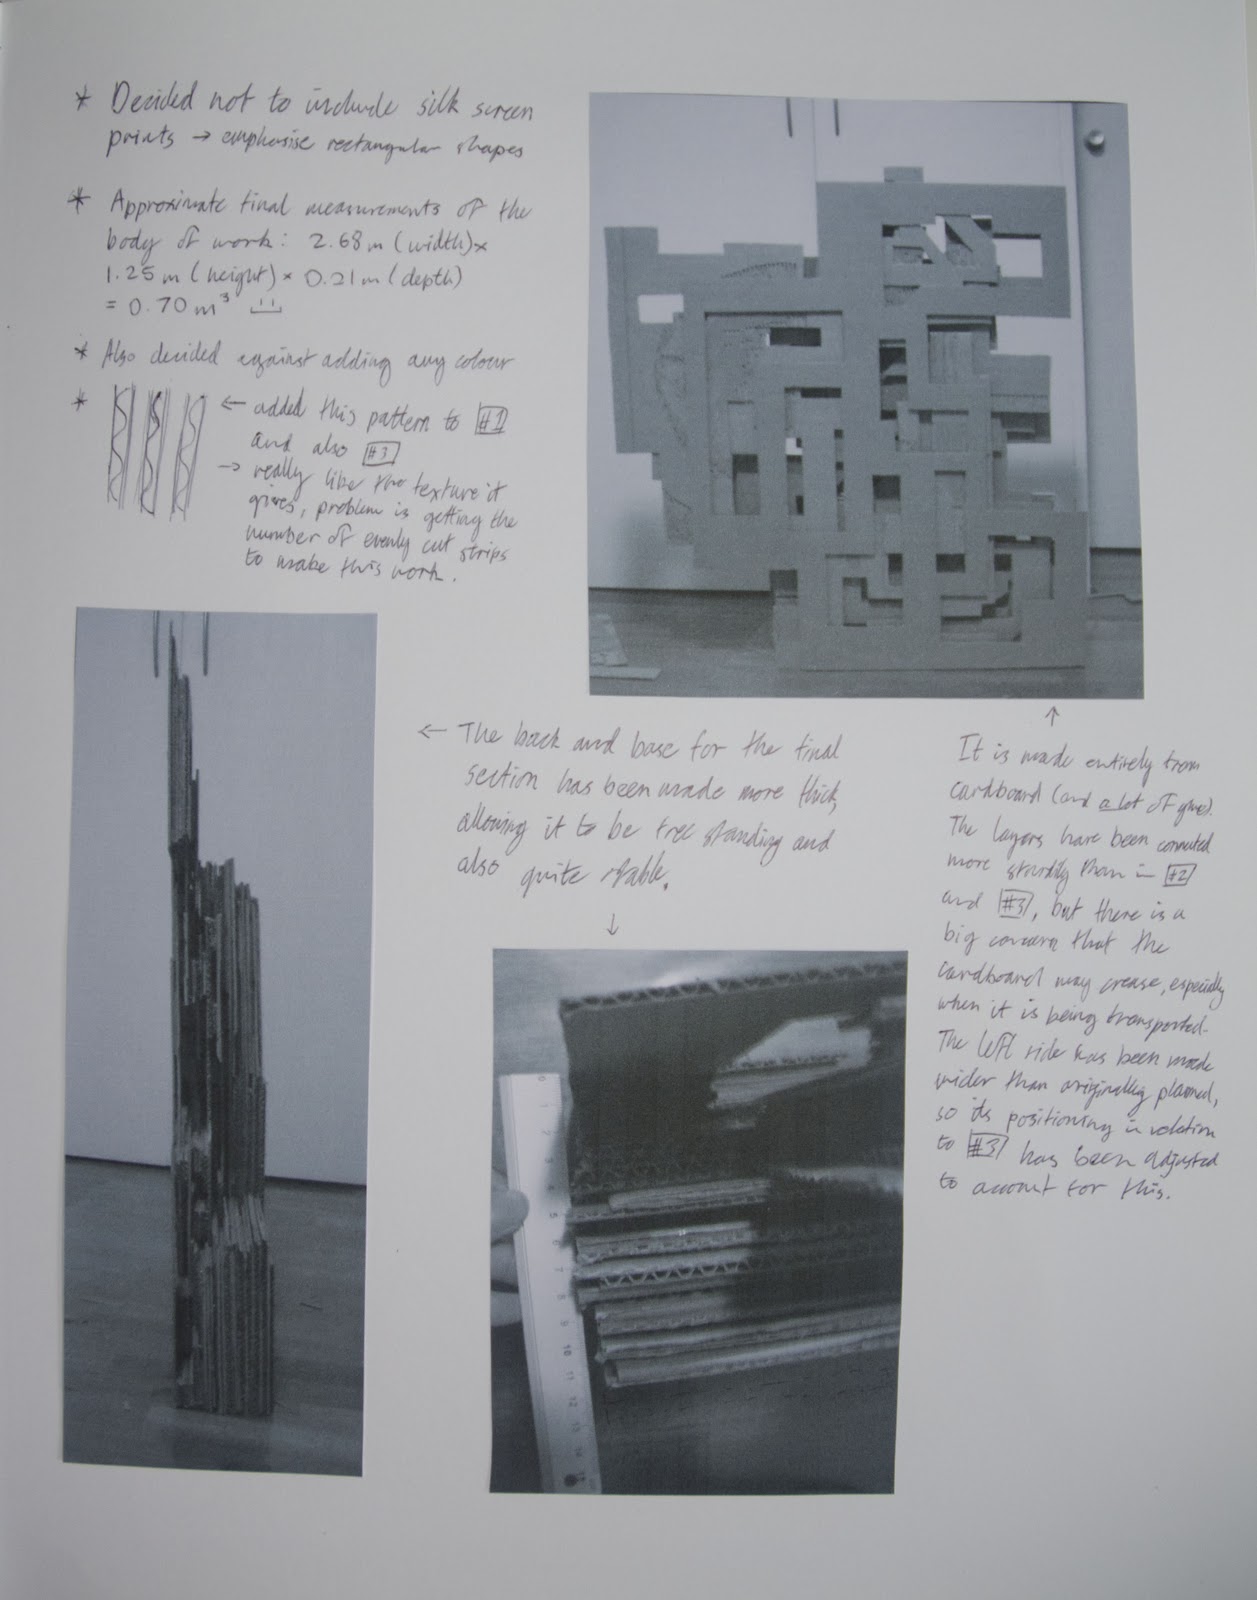 * Decided not to include silk screen
prints → emphasise rectangular shapes
* Approximate final measurements of the
body of work: 2.68 m (width) ×
1.25 m (height) × 0.21 m (depth)
= 0.70 m³
* Also decided against adding any colour
* ← added this pattern to #1
and also #3
→ really like the texture it
gives, problem is getting the
number of evenly cut strips
to make this work.
← The back and base for the final
section has been made more thick,
allowing it to be free standing and
also quite stable.
↓
↑
It is made entirely from
cardboard (and a lot of glue).
The layers have been connected
more sturdily than in #2
and #3, but there is a
big concern that the
cardboard may crease, especially
when it is being transported.
The left side has been made
wider than originally planned,
so its positioning in relation
to #3 has been adjusted
to account for this.
0
1
2
3
4
5
6
7
8
9
10
11
12
13
14
15